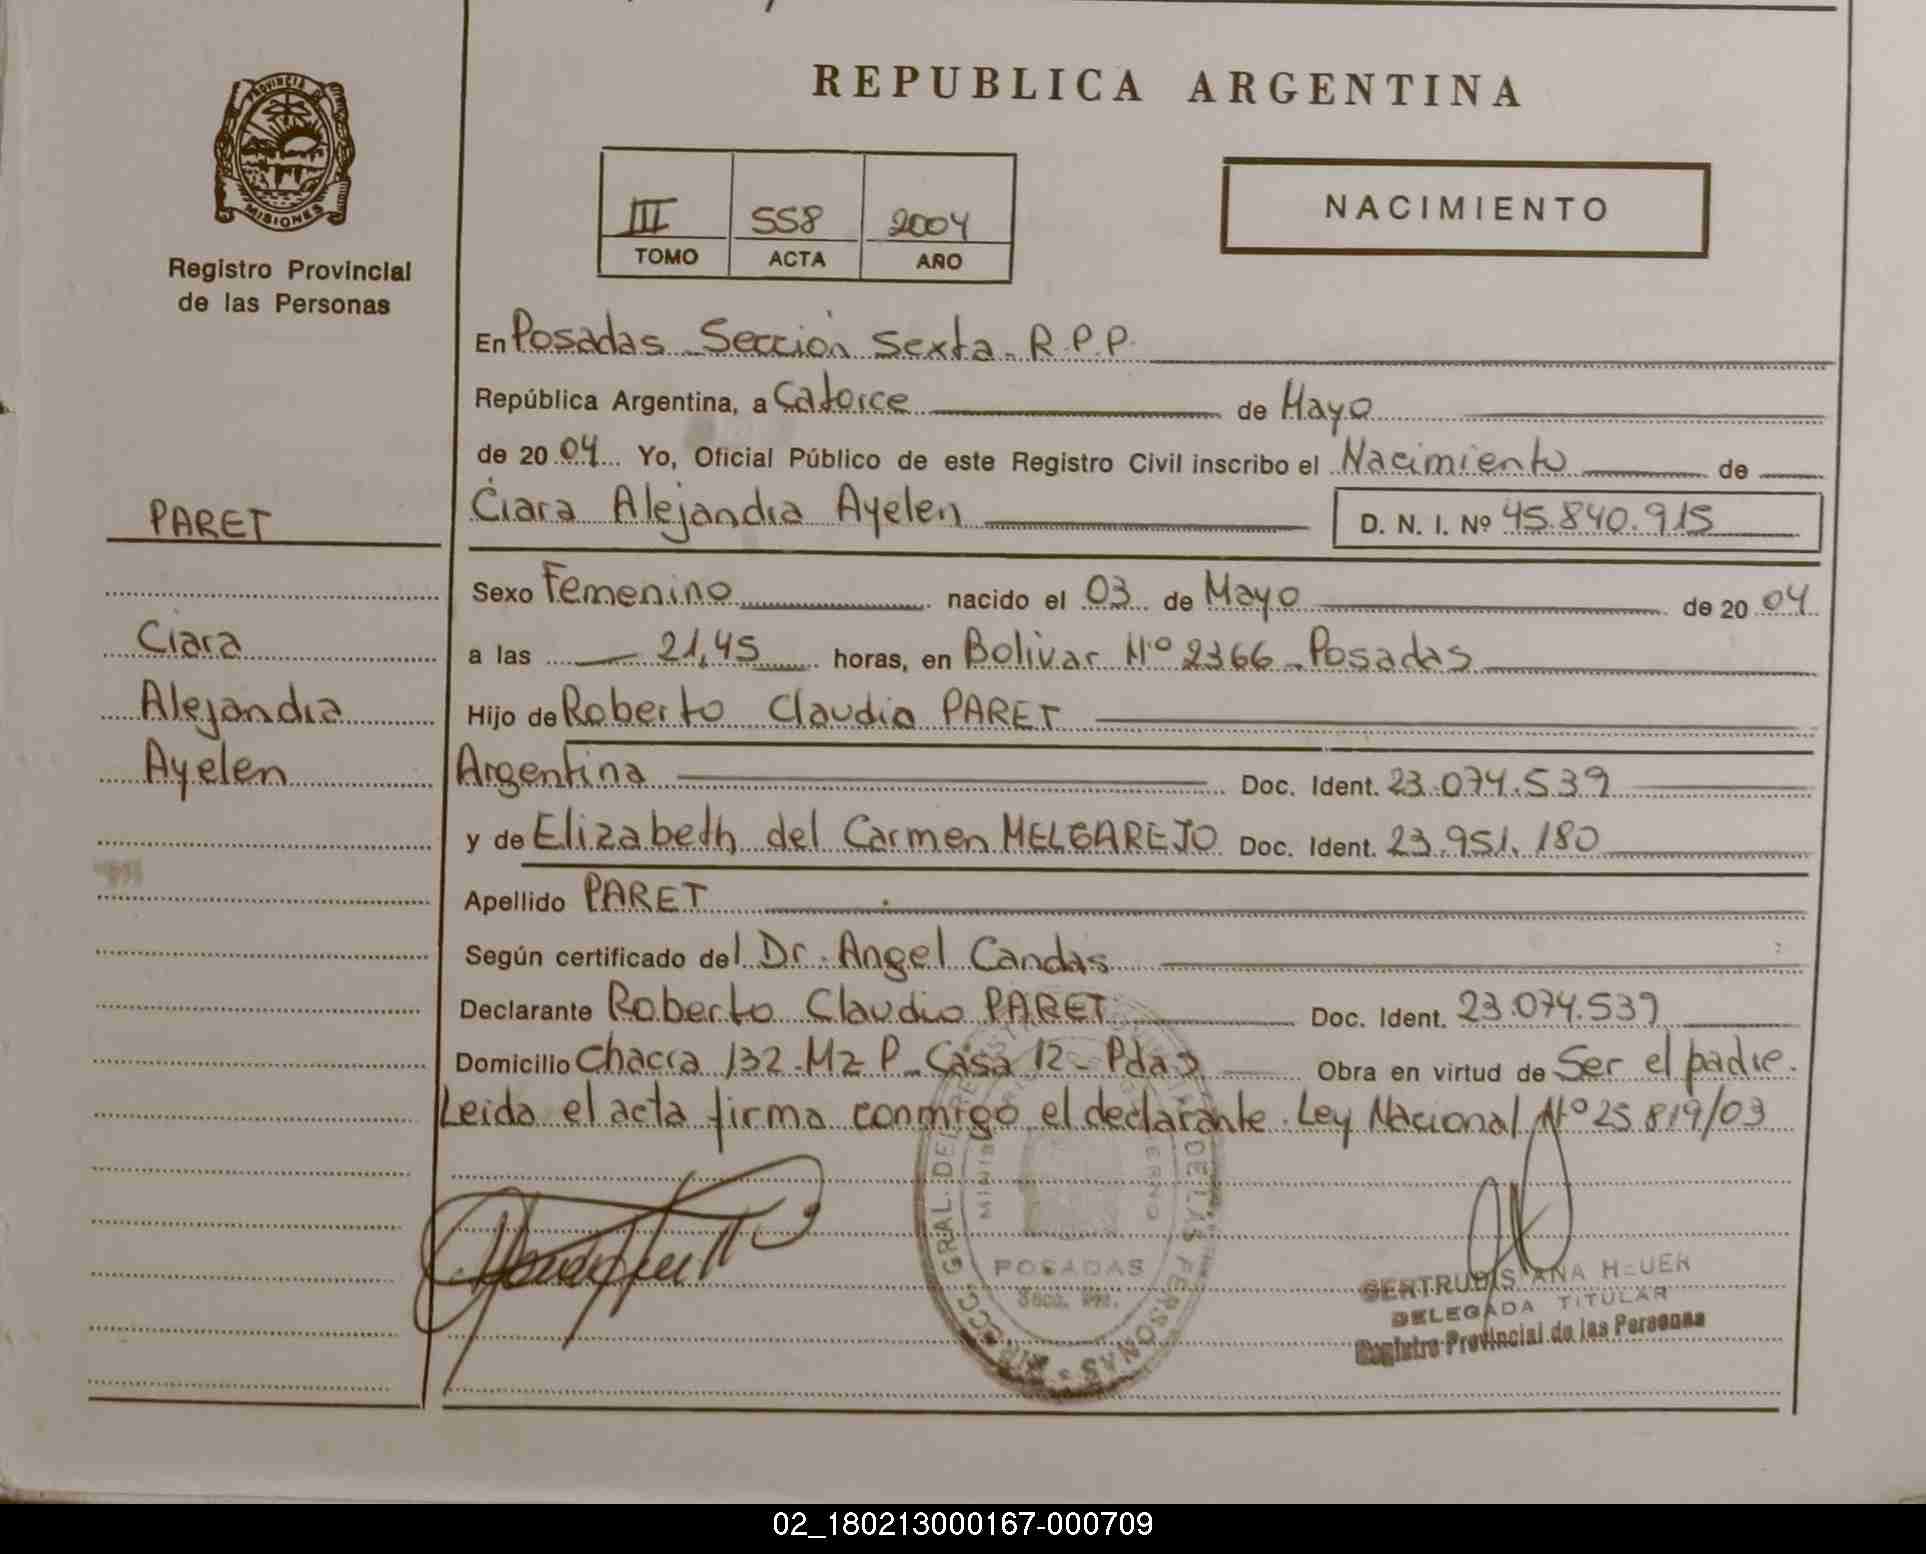 REPUBLICA ARGENTINA
PROVINCIA DE
MISIONES
Registro Provincial
de las Personas
III 558 2004
TOMO ACTA AÑO
NACIMIENTO
PARET
Ciara
Alejandra
Ayelen
En Posadas Sección Sexta. R.P.P.
República Argentina, a Catorce de Mayo
de 2004 Yo, Oficial Público de este Registro Civil inscribo el Nacimiento de
Ciara Alejandra Ayelen D. N. I. Nº 45.840.915
Sexo Femenino nacido el 03 de Mayo de 2004
a las 21,45 horas, en Bolivar Nº 2366 Posadas
Hijo de Roberto Claudio PARET
Argentina Doc. Ident. 23.074.539
y de Elizabeth del Carmen MELGAREJO Doc. Ident. 23.951.180
Apellido PARET
Según certificado del Dr. Angel Candas
Declarante Roberto Claudio PARET Doc. Ident. 23.074.539
Domicilio Chacra 132-Mz P-Casa 12-Pdas Obra en virtud de Ser el padre.
Leida el acta firma conmigo el declarante. Ley Nacional Nº 25.819/03
POSADAS
GERTRUDIS ANA HEUER
DELEGADA TITULAR
Registro Provincial de las Personas
02_180213000167-000709